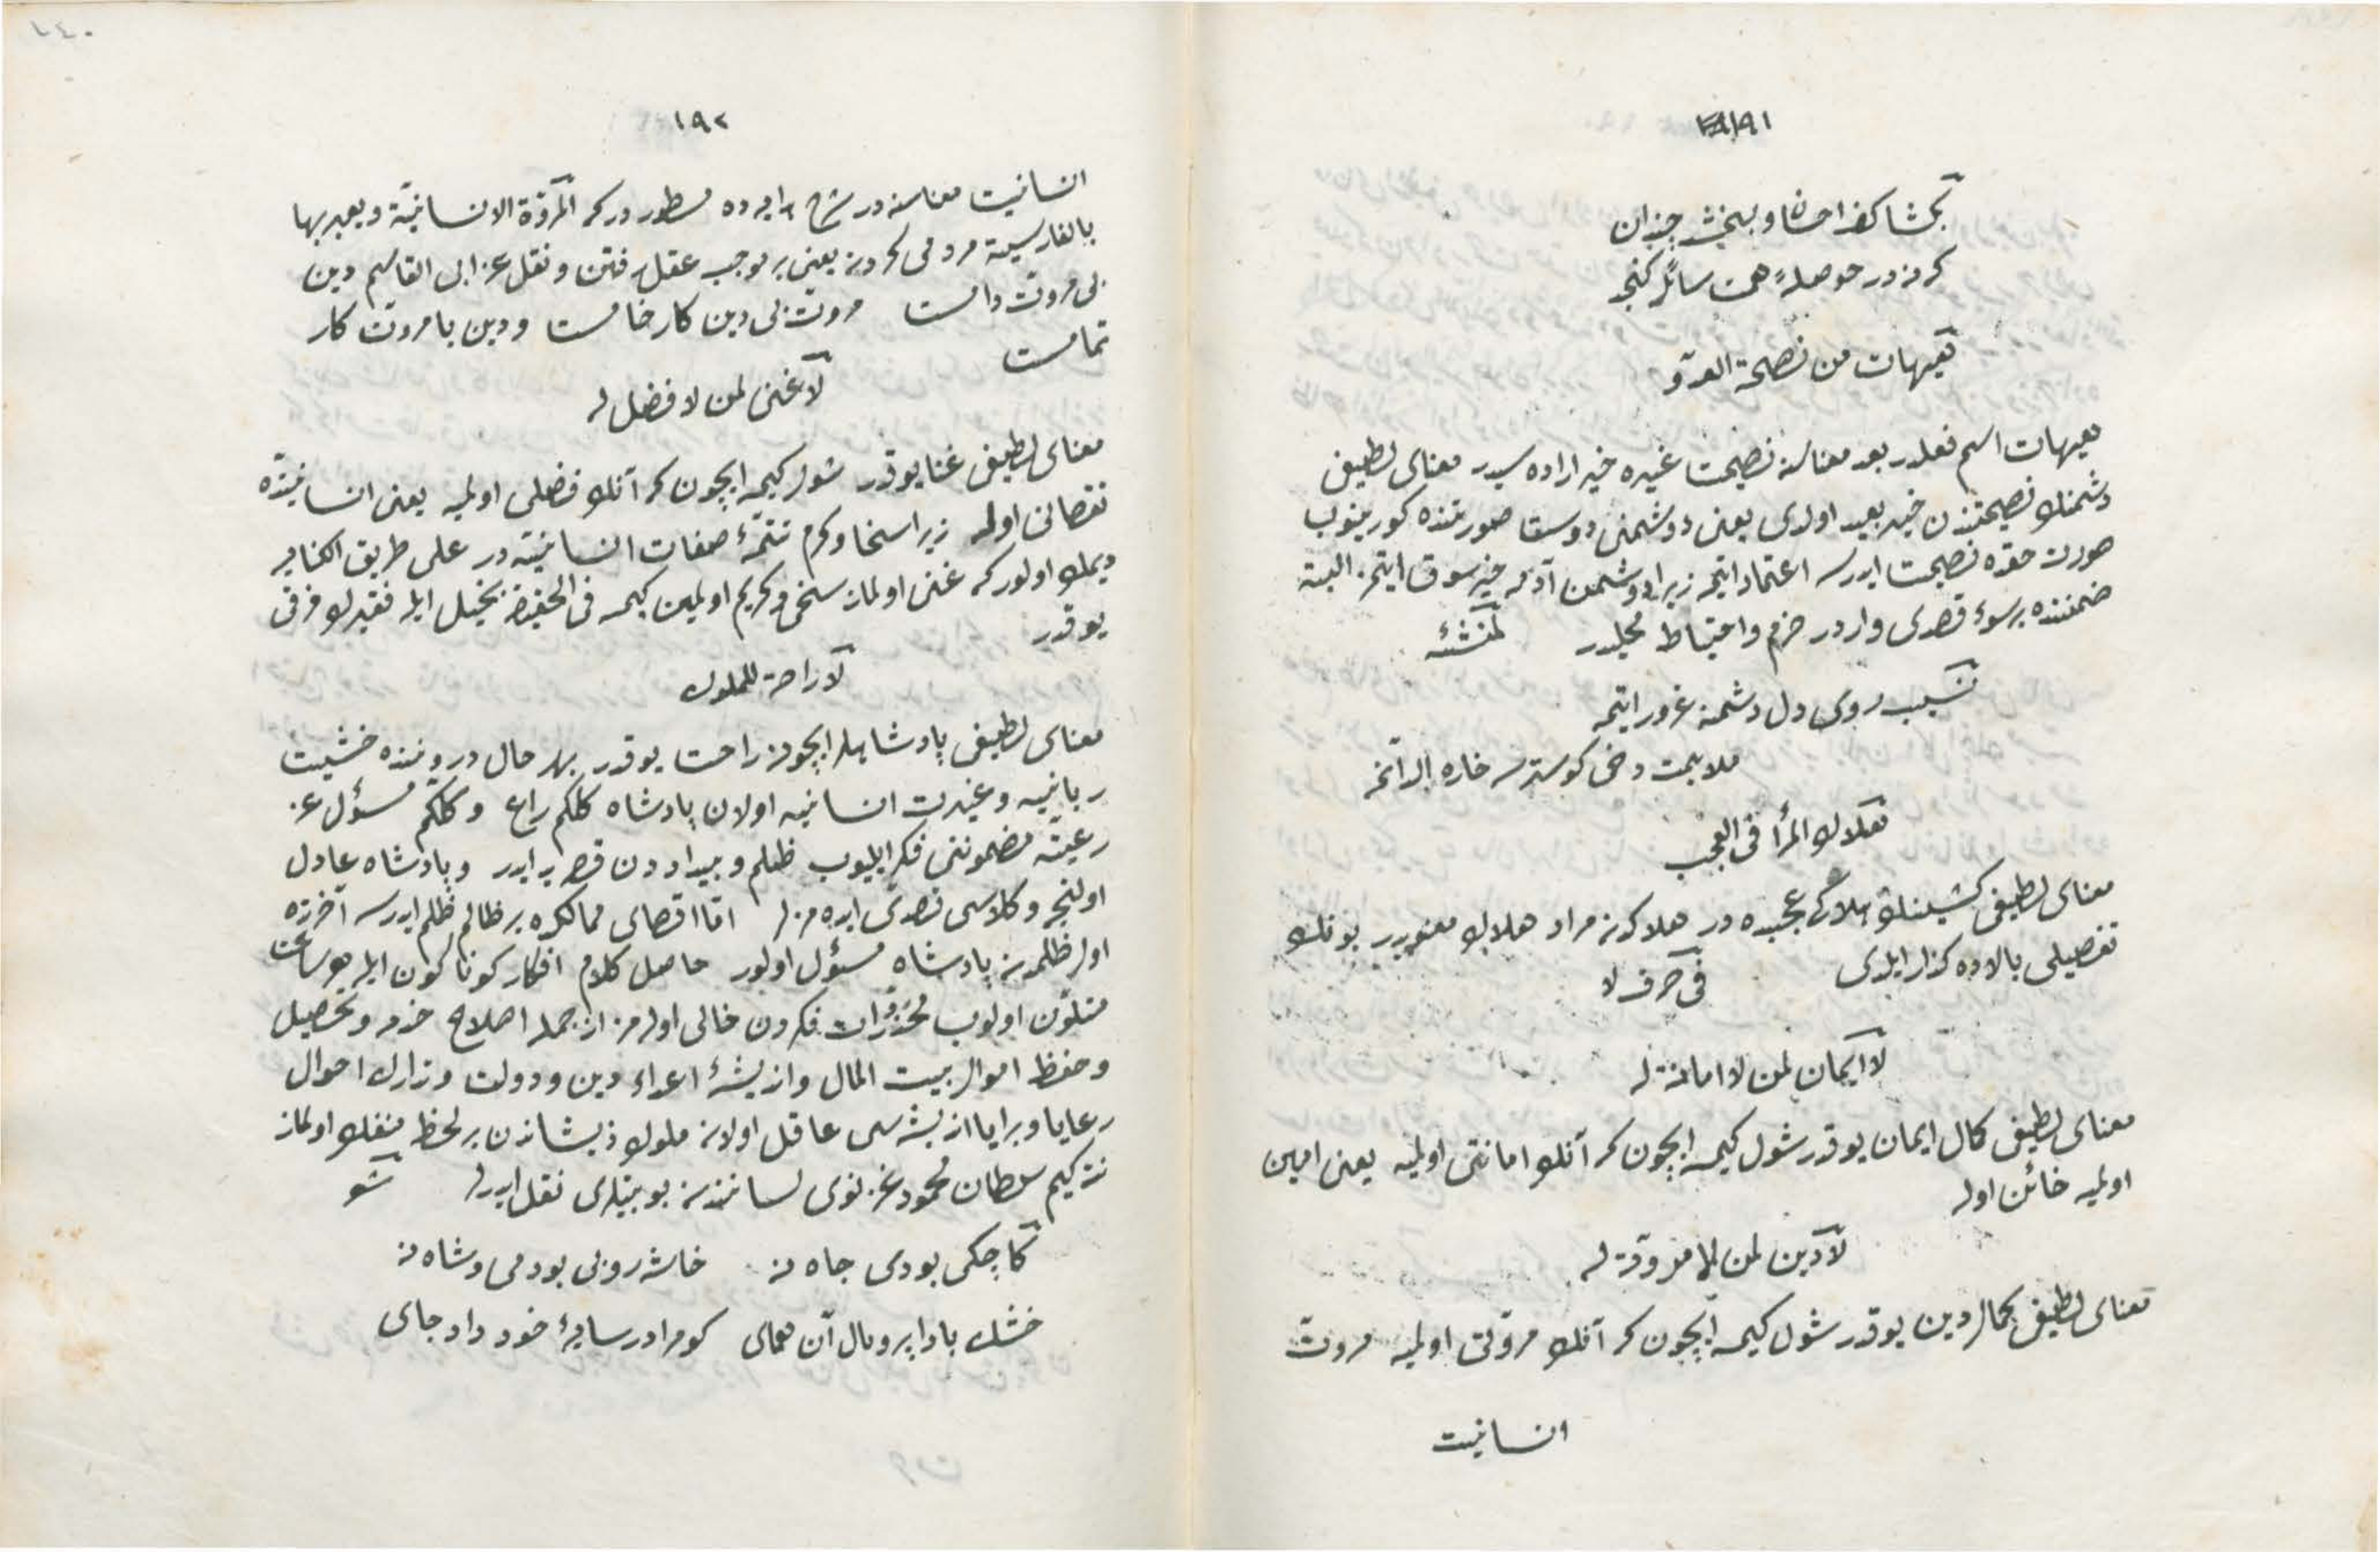 ١٩١
بكشا كف احسان و ببخش چندان
كه نه در حوصلهٔ همت سائل كنجد
هيهات من نصحة العدوّ
هيهات اسم فعلدر بعد معناسنه نصيحت غيره خير اراده سيدر معناى لطيفى
دشمنك نصيحتندن خير بعيد اولدى يعنى دوشمنى دوست صورتنده كورينوب
صورت حقده نصيحت ايدرسه اعتماد ايتمه زيرا دوشمن آدمه خير سوق ايتمز البته
ضمننده بر سوء قصدى واردر حزم و احتياط محلدر لمنشئه
روى دل دشمنه غرور ايتمه
ملايمت دخى كوسترسه خاره الدانمه
هلاك المرأ فى العجب
معناى لطيفى كشينك هلاكى عجبده در هلاكدن مراد هلاك معنويدر بونك
تفصيلى بالاده كذار ايلدى فى حرف لا
لا ايمان لمن لا امانة له
معناى لطيفى كمال ايمان يوقدر شول كيمسه ايچون كه آنك امانتى اولميه يعنى امين
اولميه خائن اوله
لا دين لمن لا مروّة له
معناى لطيفى كمال دين يوقدر شول كيمسه ايچون كه آنك مروّتى اولميه مروت
انسانيت
١٩٢
انسانيت معناسنه در شرح ده مسطور در كه المروّة الانسانيّة و يعبر بها
بالفارسية مردمى كردن يعنى بر موجب عقل رفتن و نقل عن ابى القاسم دين
بى مروّت دامست مروت بى دين كار خامست و دين با مروت كار
تمامست
لا غنى لمن لا فضل له
معناى لطيفى غنا يوقدر شول كيمسه ايچون كه آنك فضلى اولميه يعنى انسانيتده
نقصانى اوله زيرا سخا و كرم تتمّهٔ صفات انسانيته در على طريق الكنايه
ديمك اولور كه غنى اولماز سخى و كريم اولمين كيمسه فى الحقيقة بخيل ايله فقيرك فرقى
يوقدر
لا راحة للملوك
معناى لطيفى پادشاهلر ايچون راحت يوقدر بهر حال دروننده خشيت
ربانيه و غيرت انسانيه اولان پادشاه كلكم راع و كلكم مسؤل عن
رعيته مضموننى فكر ايليوب ظلم و بيداددن قصر يد ايدر و پادشاه عادل
اولنجه وكلاسى تصدّى ايده مزلر امّا اقصاى ممالكده بر ظالم ظلم ايدرسه آخرتده
اول ظلمدن پادشاه مسؤل اولور حاصل كلام افكار كوناكون ايله هر ساعت
متلوّن اولوب محذورات فكردن خالى اولمز از جمله اصلاح خدم و تحصيل
و حفظ اموال بيت المال و انديشهٔ اعداء دين و دولت و تدارك احوال
رعايا و برايا انديشه سى عاقل اولان ملوك ذيشاندن بر لحظه منفك اولماز
نته كيم سلطان محمود غزنوى لساننده بو بيتلرى نقل ايدرلر شعر
كاچكى بودى جاه نه خاشه روبى بودمى و شاه نه
خشك بادا پر و بال آن هماى كو مرا در سايهٔ خود داد جاى